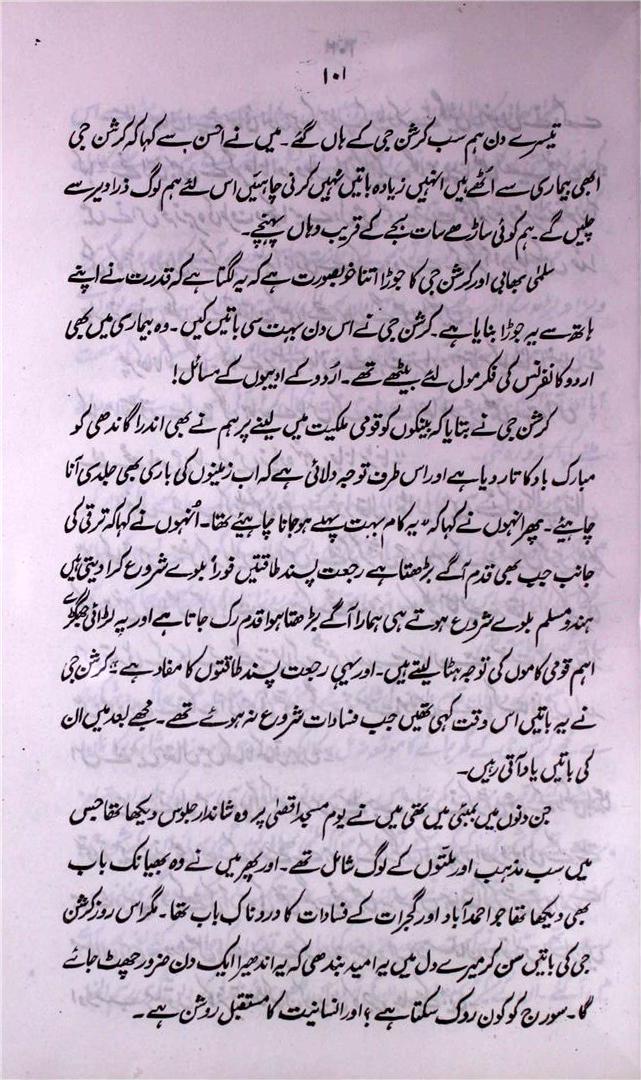 ۱۰۱
تیسرے دن ہم سب کرشن جی کے ہاں گئے۔ میں نے احسن سے کہا کہ کرشن جی
ابھی بیماری سے اٹھے ہیں انہیں زیادہ باتیں نہیں کرنی چاہئیں اس لئے ہم لوگ ذرا دیر سے
چلیں گے۔ ہم کوئی ساڑھے سات بجے کے قریب وہاں پہنچے۔
سلمٰی بھابی اور کرشن جی کا جوڑا اتنا خوبصورت ہے کہ یہ لگتا ہے کہ قدرت نے اپنے
ہاتھ سے یہ جوڑا بنایا ہے۔ کرشن جی نے اس دن بہت سی باتیں کیں۔ وہ بیماری میں بھی
اردو کانفرنس کی فکر مول لئے بیٹھے تھے۔ اردو کے ادیبوں کے مسائل!
کرشن جی نے بتایا کہ بینکوں کو قومی ملکیت میں لینے پر ہم نے بھی اندرا گاندھی کو
مبارک باد کا تار دیا ہے اور اس طرف توجہ دلائی ہے کہ اب زمینوں کی باری بھی جلدی آنا
چاہیئے۔ پھر انہوں نے کہا کہ "یہ کام بہت پہلے ہو جانا چاہیئے تھا۔ اُنہوں نے کہا کہ ترقی کی
جانب جب بھی قدم آگے بڑھتا ہے رجعت پسند طاقتیں فوراً بلوے شروع کرا دیتی ہیں
ہندو مسلم بلوے شروع ہوتے ہی ہمارا آگے بڑھتا ہوا قدم رک جاتا ہے اور یہ لڑائی جھگڑے
اہم قومی کاموں کی توجہ ہٹا لیتے ہیں۔ اور یہی رجعت پسند طاقتوں کا مفاد ہے"۔ کرشن جی
نے یہ باتیں اس وقت کہی تھیں جب فسادات شروع نہ ہوئے تھے۔ مجھے بعد میں ان
کی باتیں یاد آتی رہیں۔
جن دنوں میں بمبئی میں تھی میں نے یوم مسجد اقصٰی پر وہ شاندار جلوس دیکھا تھا جس
میں سب مذہب اور ملتوں کے لوگ شامل تھے۔ اور پھر میں نے وہ بھیانک باب
بھی دیکھا تھا جو احمد آباد اور گجرات کے فسادات کا دردناک باب تھا۔ مگر اس روز کرشن
جی کی باتیں سن کر میرے دل میں یہ امید بندھی کہ یہ اندھیرا ایک دن ضرور چھٹ جائے
گا۔ سورج کو کون روک سکتا ہے؟ اور انسانیت کا مستقبل روشن ہے۔